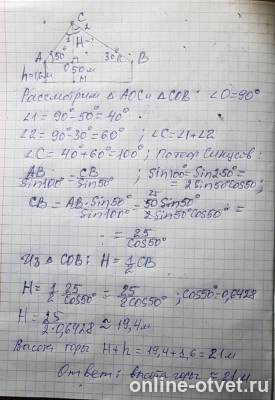 C
1 2
H
A 50° 30° B
O
h=1,6м 50м
M
Рассмотрим △AOC и △COB: ∠O=90°
∠1=90°-50°=40°
∠2=90-30=60° ; ∠C=∠1+∠2
∠C=40°+60°=100°; По теор Синусов:
AB/sin100° = CB/sin50° ; sin100°=sin2·50°=
=2sin50°cos50°;
CB = AB·Sin50°/sin100° = 50sin50°/2sin50°cos50° =
25
= 25/cos50°
Из △COB: H = 1/2 CB
H = 1/2 · 25/cos50° = 25/2cos50° ; cos50°=0,6428
H = 25/2·0,6428 ≈ 19,4м
Высота горы H+h=19,4+1,6=21м
Ответ: высота горы ≈ 21м
online-otvet.ru